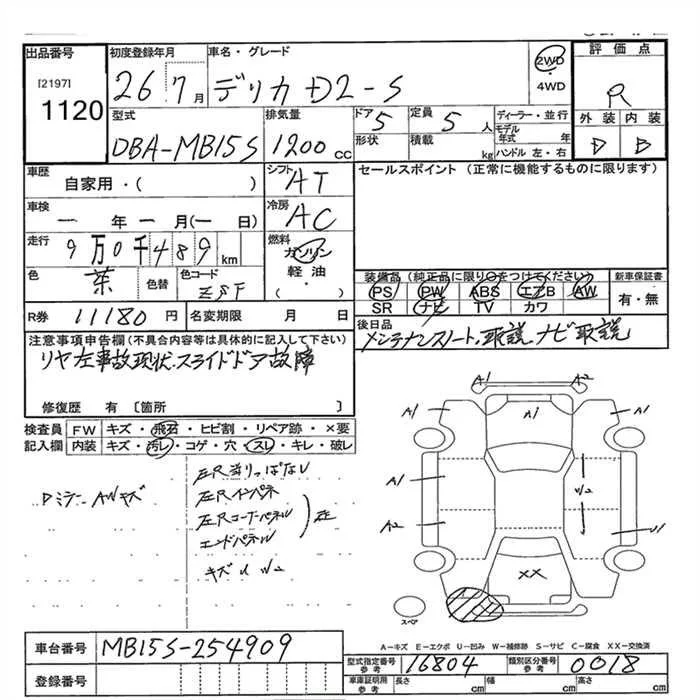 出品番号
[2197]
1120
初度登録年月
26 7月
車名・グレード
デリカD2-S
2WD
・
4WD
評価点
R
外装 内装
D B
型式
DBA-MB15S
排気量
1200cc
ドア 5
形状
定員 5人
積載 kg
ディーラー・並行
モデル年式 年
ハンドル 左・右
車歴
自家用・( )
シフト AT
車検
一年一月(一日)
冷房 AC
走行
9万0千489km
燃料
ガソリン
軽油・
( )
色 茶
色替
色コード
ZSF
R券 11180円
名変期限 月 日
セールスポイント (正常に機能するものに限ります)
装備品(純正品に限り○をつけてください)
PS PW ABS エアB AW
SR ナビ TV カワ
新車保証書
有・無
後日品
メンテナンスノート、取説、ナビ取説
注意事項申告欄(不具合内容等は具体的に記入して下さい)
リヤ左事故現状、スライドドア故障
修復歴 有〔箇所 〕
検査員記入欄
FW キズ・飛石・ヒビ割・リペア跡・×要
内装 キズ・汚レ・コゲ・穴・スレ・キレ・破レ
Dミラー AWキズ
左R当りっぱなし
左Rインパネ
左Rコーナーパネル
エンドパネル
キズU U2
A1
A2
A1
A1
A1
A1
A2
U2
U1
XX
スペア
A-キズ E-エクボ U-凹み W-補修跡 S-サビ C-腐食 XX-交換済
車台番号 MB15S-254909
登録番号
型式指定番号参考 16804
類別区分番号参考 0018
車庫証明用参考 長さ cm 幅 cm 高さ cm